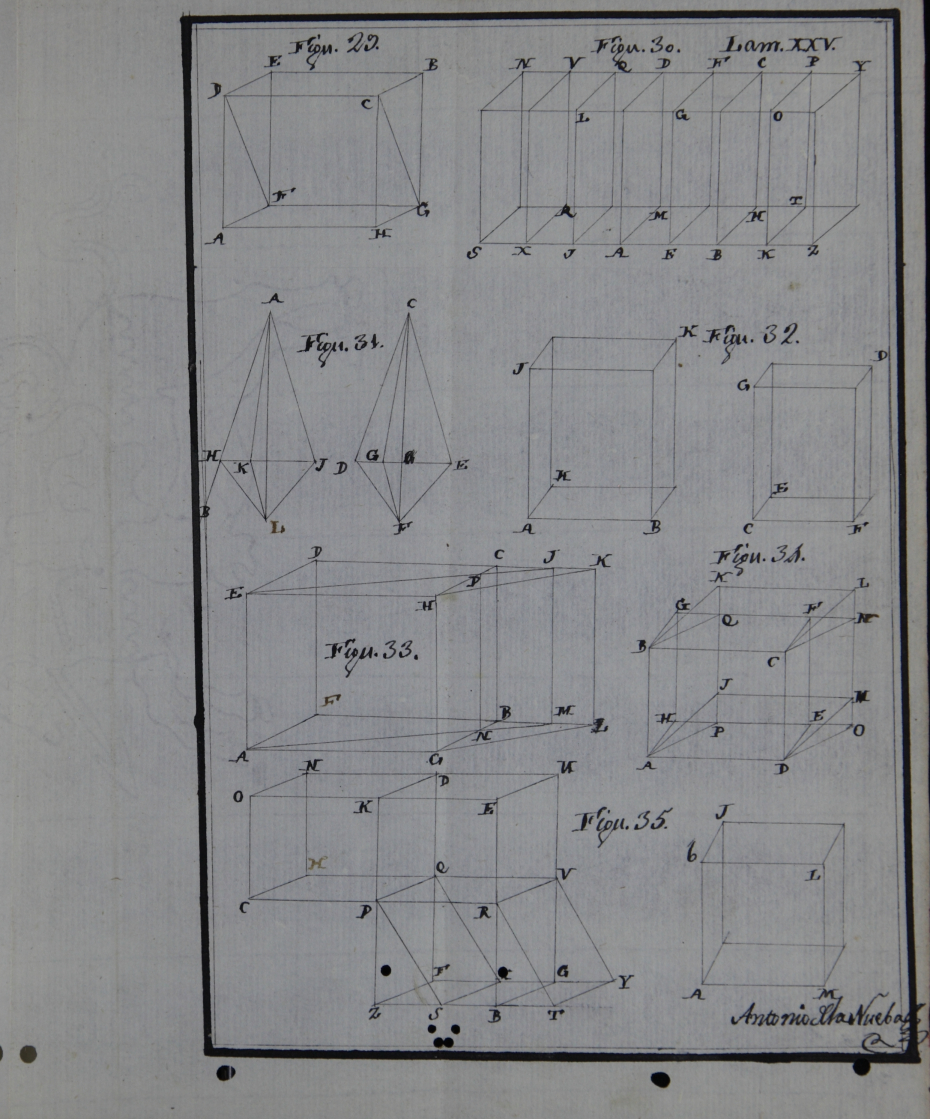 Figu. 29.
Figu. 30. Lam. XXV.
E B
D C
F G
A H
N V Q D F C P Y
L G O
R M H T
S X J A E B K Z
A C
Figu. 31.
K Figu. 32.
J
D
G
H K J D G E
B L F
H
A B
E
C F
D C J K
E H P
Figu. 33.
F B M L
N
A G
Figu. 34.
K L
G Q F N
B C
J M
H P E O
A D
N D U
O K E
Figu. 35.
J
b L
H Q V
C P R
F G Y
Z S B T
A M
Antonio